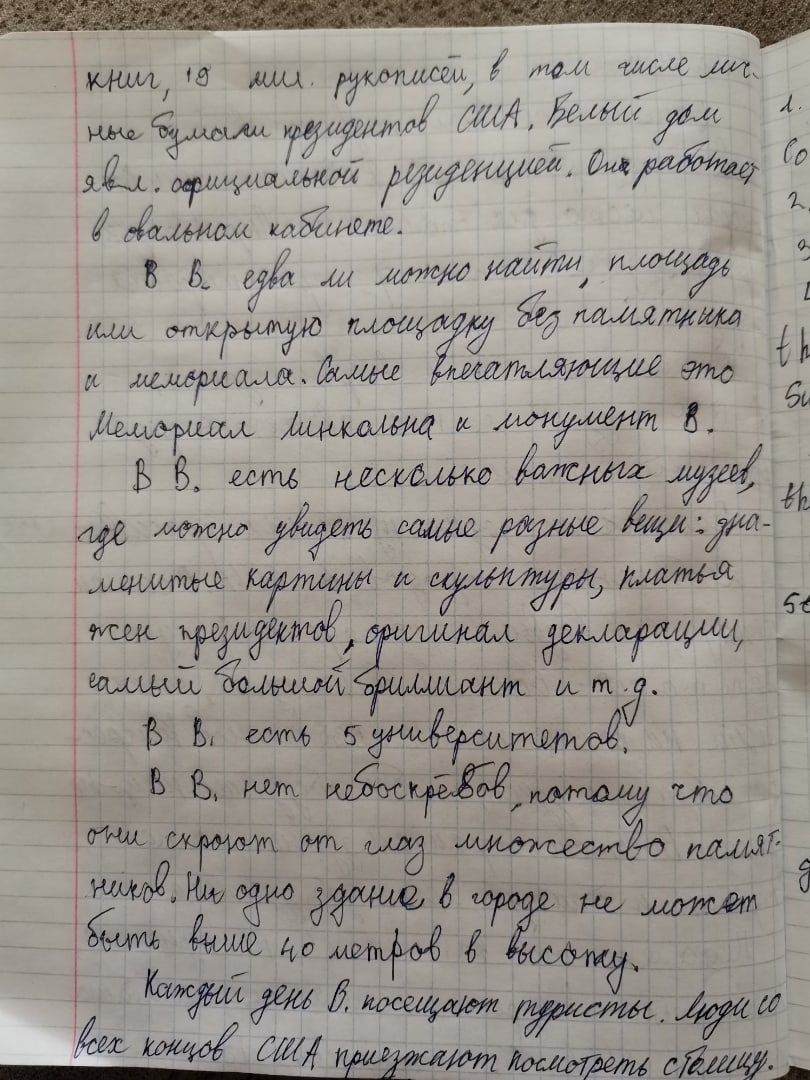 книг, 19 мил. рукописей, в том числе лич-
ные бумаги президентов США. Белый дом
явл. официальной резиденцией. Он работает
в овальном кабинете.
В В. едва ли можно найти площадь
или открытую площадку без памятника
и мемориала. Самые впечатляющие это
Мемориал Линкольна и монумент В.
В В. есть несколько важных музеев,
где можно увидеть самые разные вещи: зна-
менитые картины и скульптуры, платья
жен президентов, оригинал декларации,
самый большой бриллиант и т.д.
В В. есть 5 университетов.
В В. нет небоскрёбов, потому что
они скроют от глаз множество памят-
ников. Ни одно здание в городе не может
быть выше 40 метров в высоту.
Каждый день В. посещают туристы. Люди со
всех концов США приезжают посмотреть столицу.
1.
Со
2.
3
th
Su
th
St